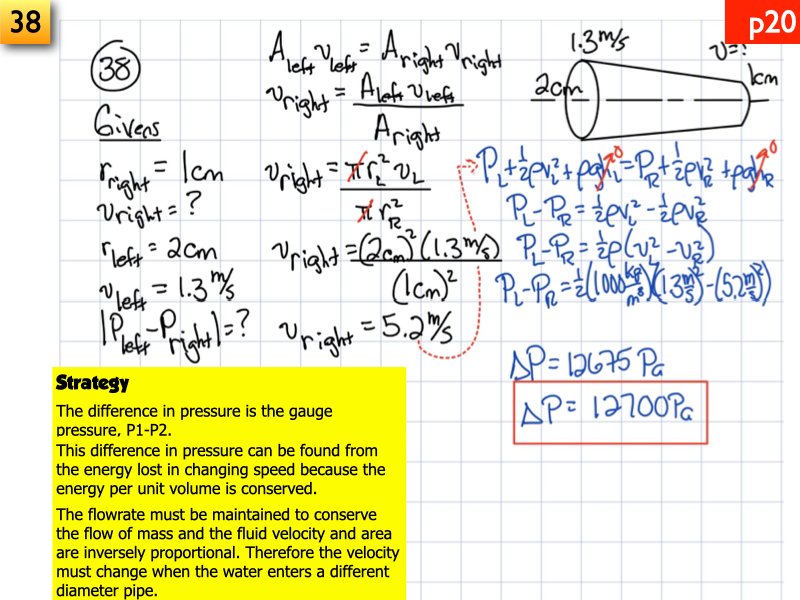 38
p20
38
Givens
r_right = 1cm
v_right = ?
r_left = 2cm
v_left = 1.3 m/s
|P_left - P_right| = ?
A_left v_left = A_right v_right
v_right = A_left v_left / A_right
v_right = π r_L² v_L / π r_R²
v_right = (2cm)² (1.3 m/s) / (1cm)²
v_right = 5.2 m/s
1.3 m/s
v=?
2cm
1cm
P_L + ½ρv_L² + ρgh_L⁰ = P_R + ½ρv_R² + ρgh_R⁰
P_L - P_R = ½ρv_L² - ½ρv_R²
P_L - P_R = ½ρ(v_L² - v_R²)
P_L - P_R = ½(1000 kg/m³)((1.3 m/s)² - (5.2 m/s)²)
ΔP = 12675 Pa
ΔP = 12700 Pa
Strategy
The difference in pressure is the gauge
pressure, P1-P2.
This difference in pressure can be found from
the energy lost in changing speed because the
energy per unit volume is conserved.
The flowrate must be maintained to conserve
the flow of mass and the fluid velocity and area
are inversely proportional. Therefore the velocity
must change when the water enters a different
diameter pipe.